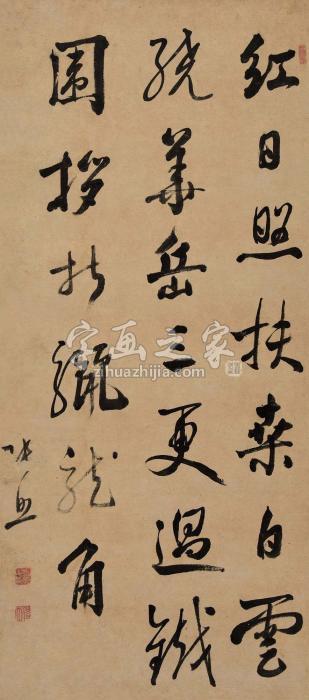 红日照扶桑白雲
绕華岳三更過鐵
圍拶折驪龍角
张照
字画之家
zihuazhijia.com